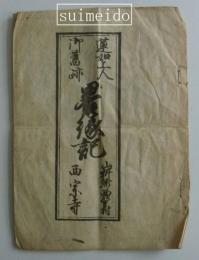 suimeido
蓮如上人
御舊跡
畧縁記
西宗寺